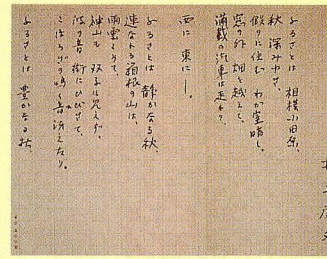 ふるさとは、相模小田原、
秋深みかも、
仮りに住む わが室暗し。
窓の外 畑を越えて、
満載の汽車は走れり、
西に 東に―。
ふるさとは 静かなる秋、
連なれる箱根の山は、
雨雲とぢて、
神山も 双子も見えず。
波の音 街にひびきて、
こほろぎの鳴く音消えたり。
ふるさとは 豊かなる秋、